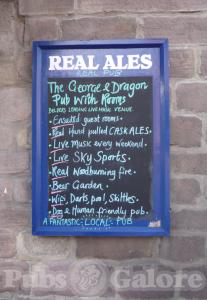 REAL ALES
REAL PUB
The George & Dragon
Pub With Rooms
BELPERS LEADING LIVE MUSIC VENUE.
- Ensuited guest rooms.
- Real Hand pulled CASK ALES.
- Live Music every Weekend.
- Live Sky Sports.
- Real Woodburning fire.
- Beer Garden.
- Wifi, Darts, pool, Skittles.
- Dog & Human friendly pub.
A FANTASTIC LOCAL PUB
Pubs Galore